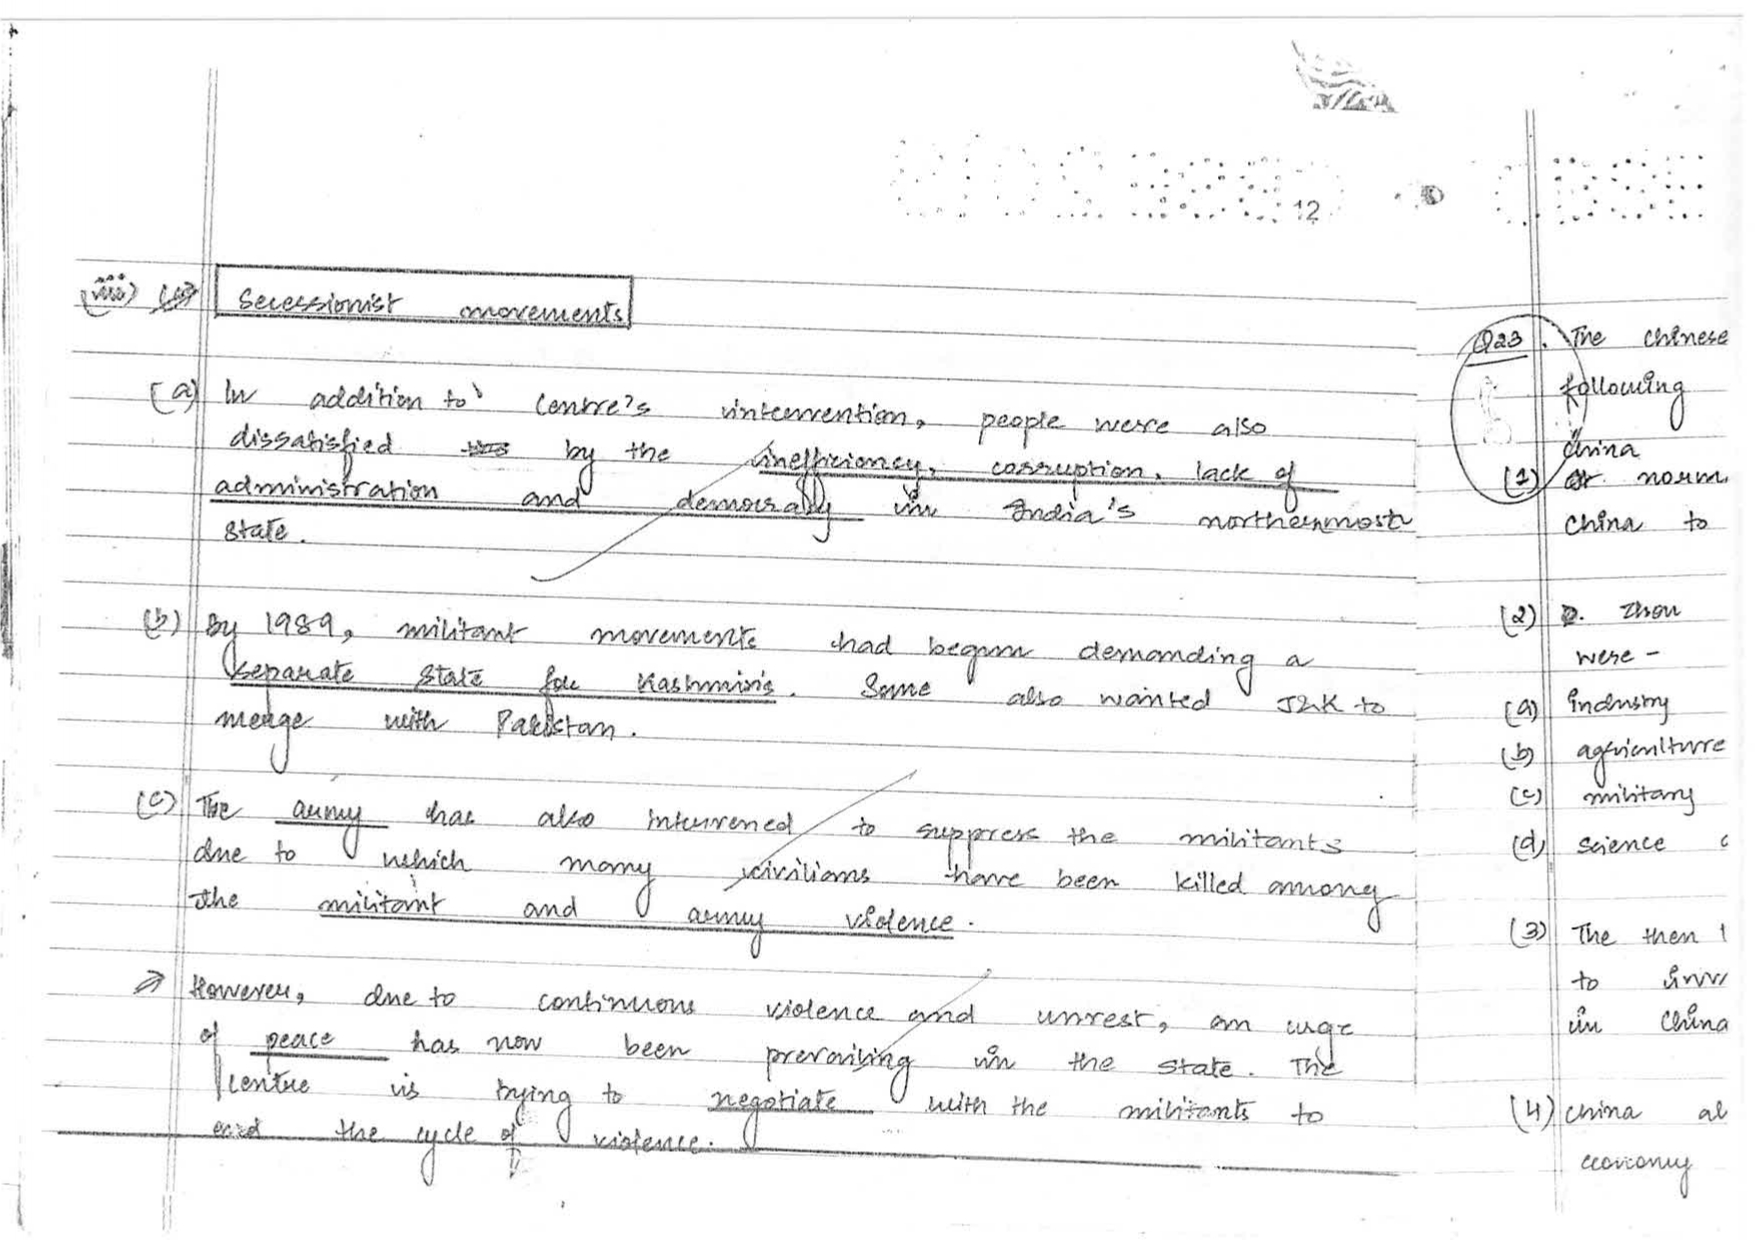 12
(viii)
Secessionist movements
(a) In addition to Centre's intervention, people were also
dissatisfied by the inefficiency, corruption, lack of
administration and democracy in India's northernmost
state.
(b) By 1989, militant movements had begun demanding a
separate state for Kashmiris. Some also wanted J&K to
merge with Pakistan.
(c) The army has also intervened to suppress the militants
due to which many civilians have been killed among
the militant and army violence.
→ However, due to continuous violence and unrest, an urge
of peace has now been prevailing in the state. The
centre is trying to negotiate with the militants to
end the cycle of violence.
Q23. The Chinese
following
China
(1) norm
China to
(2) Zhou
were -
(a) industry
(b) agriculture
(c) military
(d) science
(3) The then
to
in China
(4) China al
economy